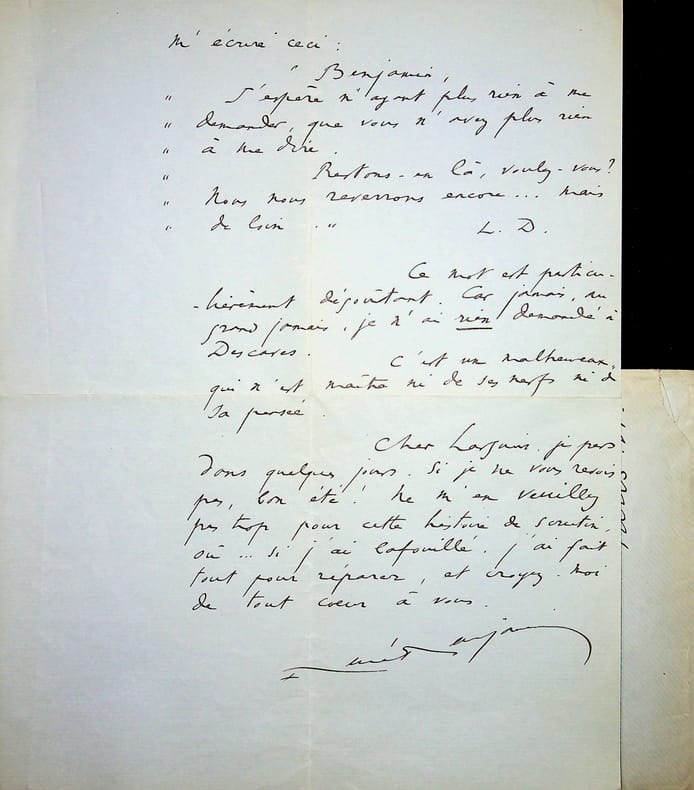 m'écrire ceci :
" Benjamin,
" J'espère n'ayant plus rien à me
" demander, que vous n'avez plus rien
" à me dire.
" Restons-en là, voulez-vous ?
" Nous nous reverrons encore... mais
" de loin. " L. D.
Ce mot est particu-
-lièrement dégoûtant. Car jamais, au
grand jamais, je n'ai rien demandé à
Descaves. C'est un malheureux,
qui n'est maître ni de ses nerfs ni de
sa pensée.
Cher Larguier, je pars
dans quelques jours. Si je ne vous revois
pas, bon été ! Ne m'en veuillez
pas trop pour cette histoire de scrutin,
où... si j'ai bafouillé. J'ai fait
tout pour réparer, et croyez-moi
de tout coeur à vous.
René Benjamin